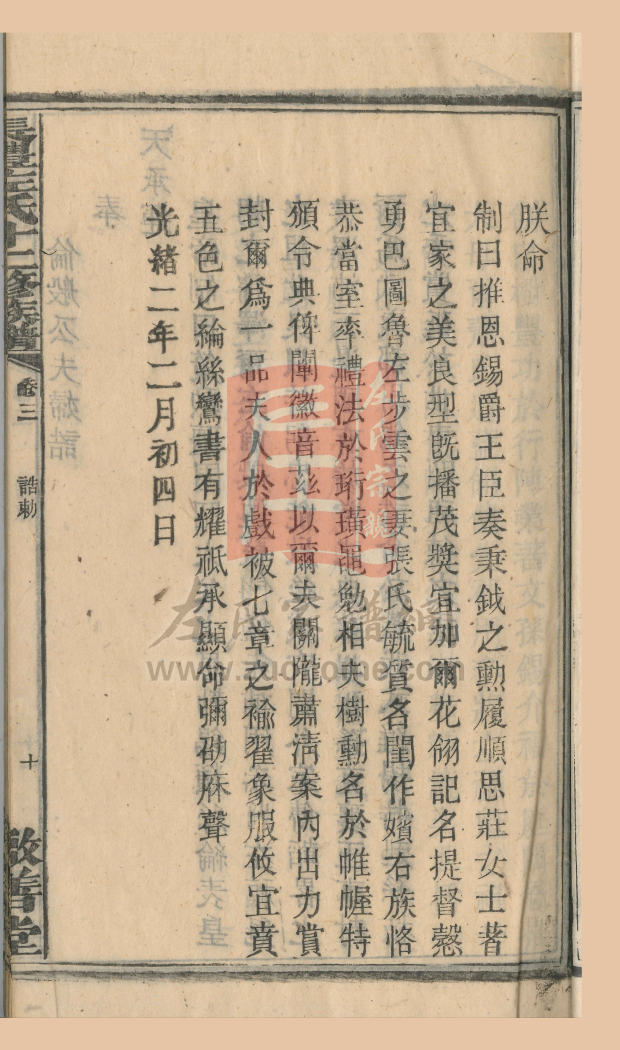 朕命
制曰推恩錫爵王臣奏秉鉞之勳履順思莊女士著
宜家之美良型旣播茂獎宜加爾花翎記名提督慤
勇巴圖魯左步雲之妻張氏毓質名閨作嬪右族恪
恭當室率禮法於珩璜黽勉相夫樹勳名於帷幄特
頒令典俾闡徽音茲以爾夫關隴肅淸案內出力賞
封爾爲一品夫人於戲被七章之褕翟象服攸宜賁
五色之綸絲鸞書有耀祗承顯命彌劭庥聲
光緒二年二月初四日
左氏十二修族譜
卷三
誥勅
十
敦善堂
左氏宗親
www.zuoshome.com